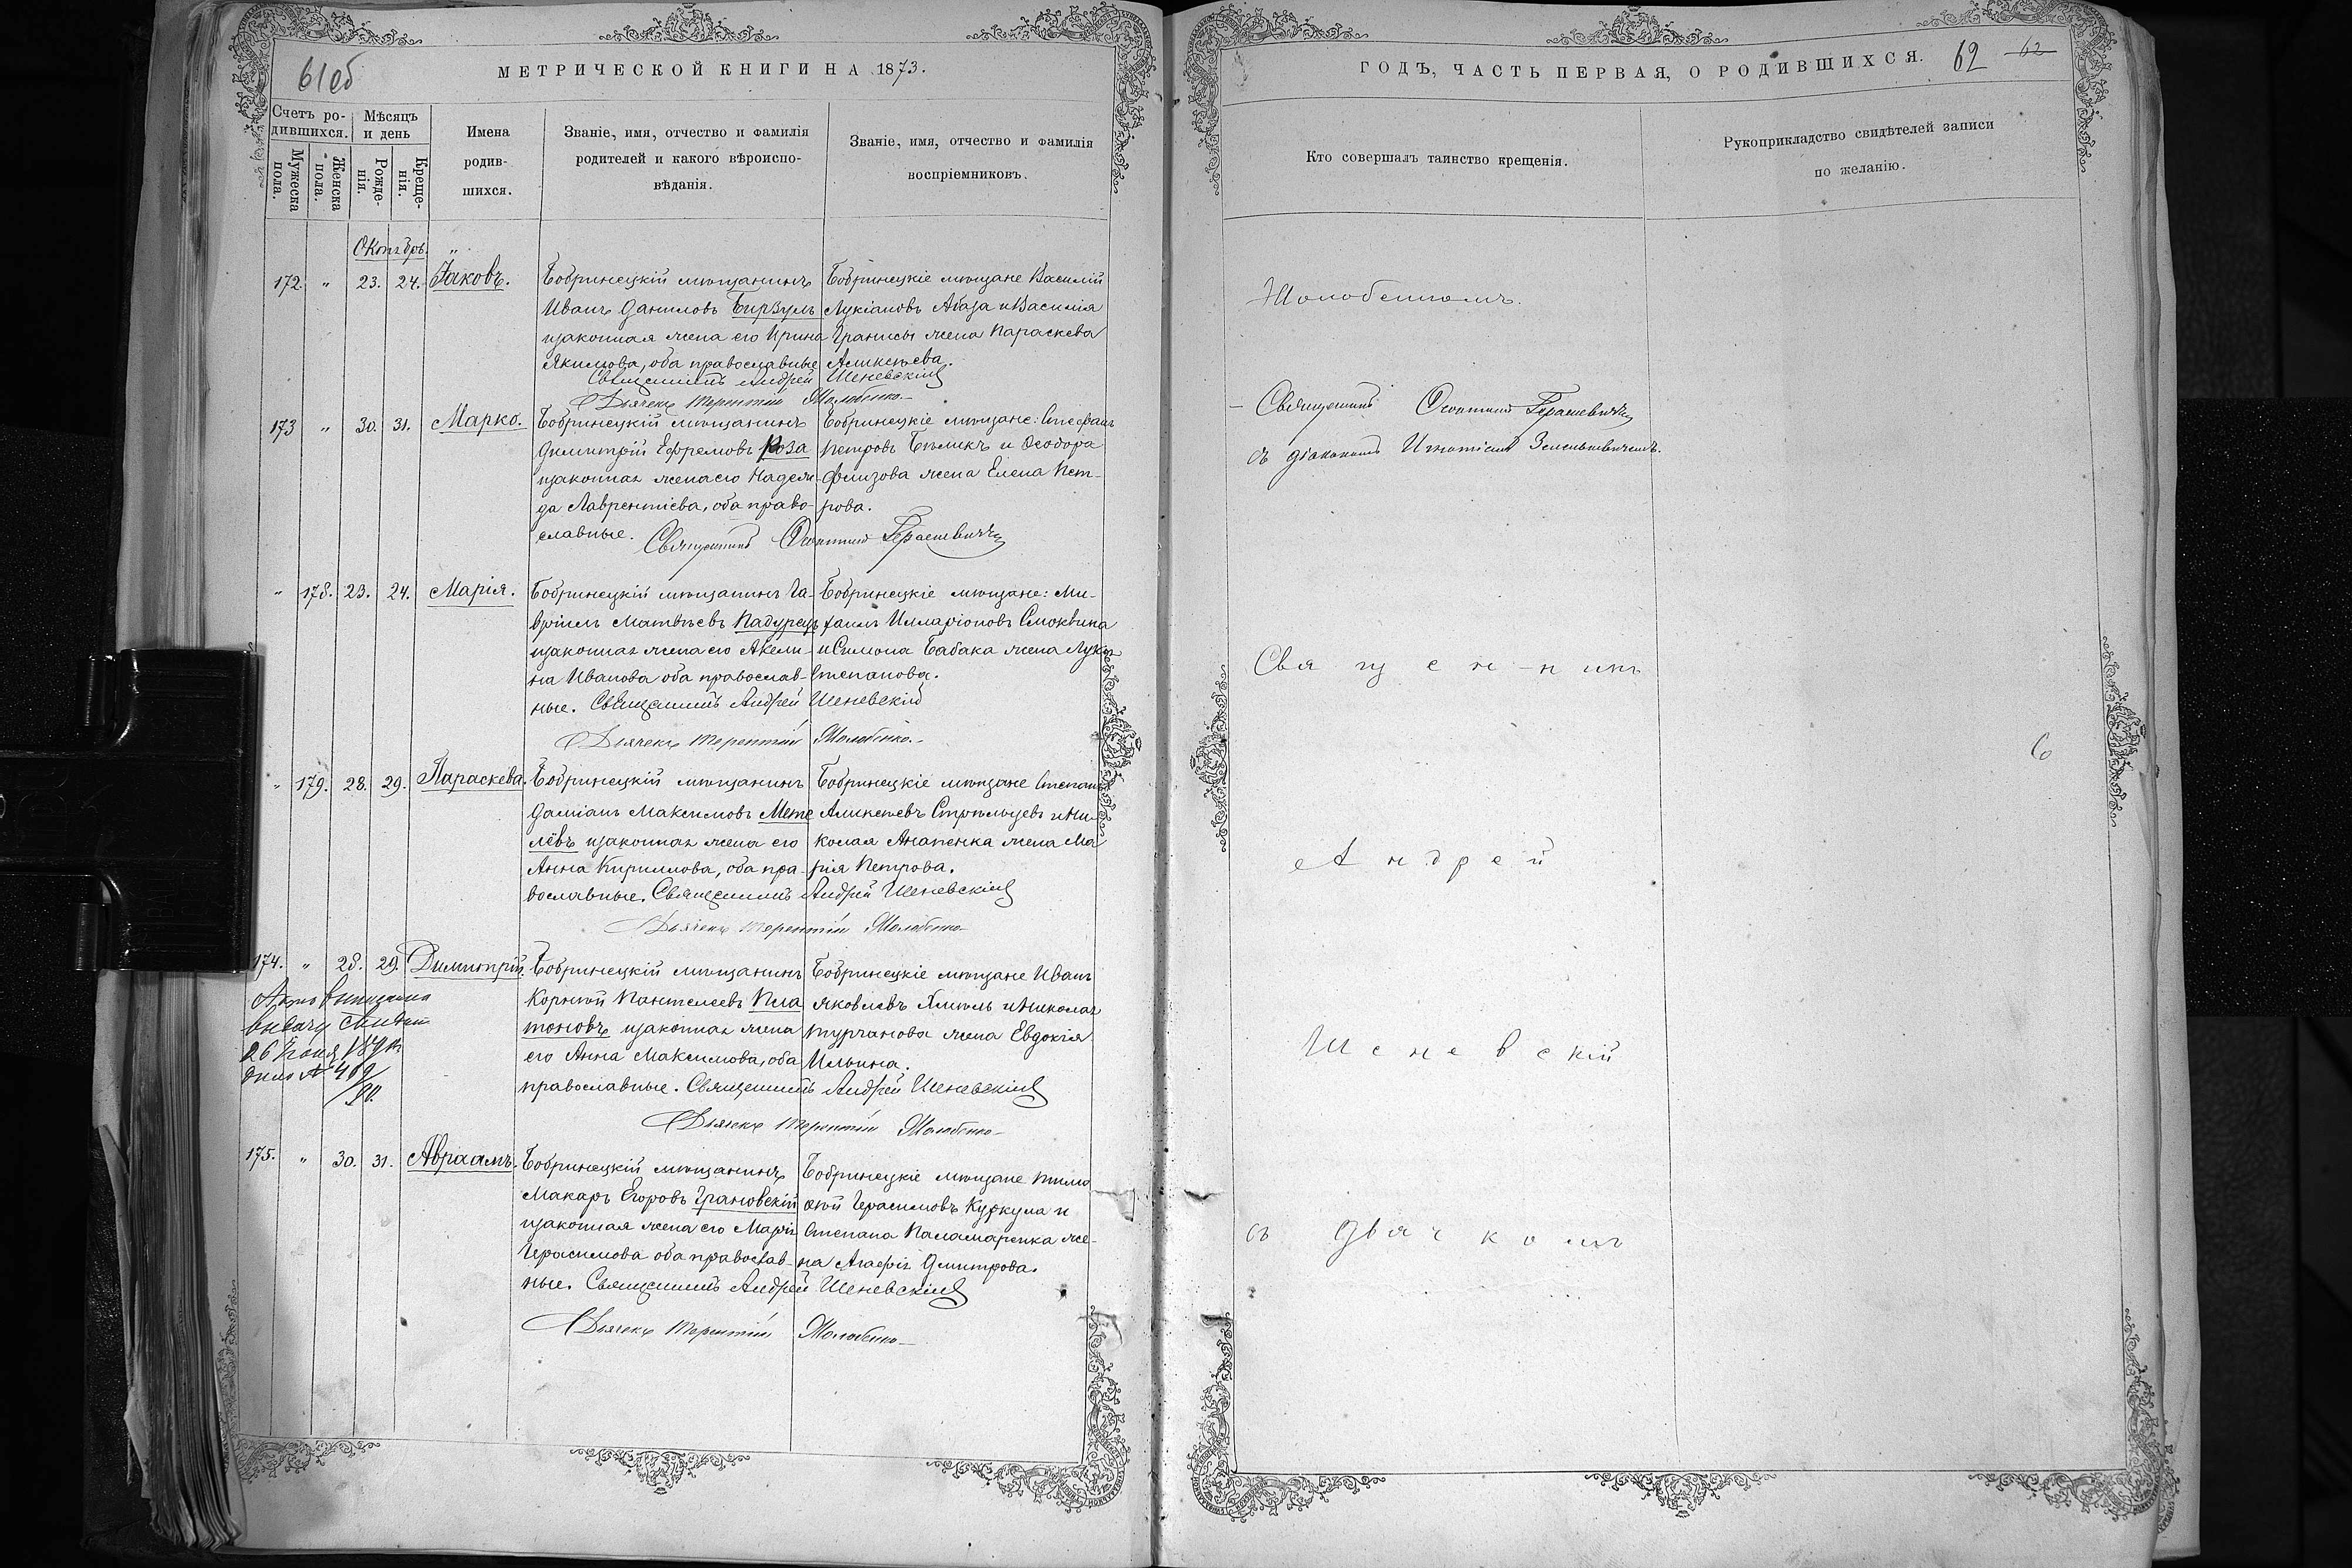 61об
МЕТРИЧЕСКОЙ КНИГИ НА 1873.
Счетъ родившихся.
Мѣсяцъ и день
Мужеска пола.
Женска пола.
Рожденія.
Крещенія.
Имена родившихся.
Званіе, имя, отчество и фамилія
родителей и какого вѣроиспо-
вѣданія.
Званіе, имя, отчество и фамилія
воспріемниковъ.
Октябрь. „
172. „ 23. 24. Іаковъ.
Бобринецкій мѣщанинъ
Иванъ Даниловъ Бирзулъ
изаконная жена его Ирина
Якимова, оба православные
Бобринецкіе мѣщане Василій
Лукіановъ Абаза и Василія
Гранисы жена Параскева
Алексѣева.
Священникъ Андрей Шеневскій
Дьячекъ Терентій Жолобенко
173 „ 30. 31. Марко.
Бобринецкій мѣщанинъ
Димитрій Ефремовъ Коза
изаконная жена его Надеж-
да Лаврентіева, оба право-
славные.
Бобринецкіе мѣщане: Стефанъ
Петровъ Бѣликъ и Ѳеодора
жена Елена Пет-
рова.
Священникъ Герасевичъ
„ 178. 23. 24. Марія.
Бобринецкій мѣщанинъ Га-
вріилъ Матвѣевъ Падурецъ
изаконная жена его Акели-
на Иванова оба православ-
ные.
Бобринецкіе мѣщане: Ми-
хаилъ Илларіоновъ Смоквина
и Симона Бабака жена Лукія
Степанова.
Священникъ Андрей Шеневскій
Дьячекъ Терентій Жолобенко
„ 179. 28. 29. Параскева.
Бобринецкій мѣщанинъ
Даміанъ Максимовъ Мете
лёвъ изаконная жена его
Анна Кириллова, оба пра-
вославные.
Бобринецкіе мѣщане Степанъ
Алексѣевъ Стрѣльцевъ и Ни-
колая Ананенка жена Ма
рія Петрова.
Священникъ Андрей Шеневскій
Дьячекъ Терентій Жолобенко
174. „ 28. 29. Димитрій.
26
Бобринецкій мѣщанинъ
Корній Пантелеевъ Пла
тоновъ изаконная жена
его Анна Максимова, оба
православные.
Бобринецкіе мѣщане Иванъ
Яковлевъ Хмѣль и Николая
Турчанова жена Евдокія
Ильина.
Священникъ Андрей Шеневскій
Дьячекъ Терентій Жолобенко
175. „ 30. 31. Авраамъ.
Бобринецкій мѣщанинъ
Макаръ Егоровъ Грановскій
изаконная жена его Марія
Герасимова оба православ-
ные.
Бобринецкіе мѣщане Тимо
ѳей Герасимовъ Куркула и
Степана Паламаренка же-
на Агафія Дмитрова.
Священникъ Андрей Шеневскій
Дьячекъ Терентій Жолобенко
ГОДЪ, ЧАСТЬ ПЕРВАЯ, О РОДИВШИХСЯ. 62 62
Кто совершалъ таинство крещенія.
Рукоприкладство свидѣтелей записи
по желанію.
Жолобенкомъ.
Священникъ Герасевичъ
съ діакономъ Игнатіемъ
Священникъ
Андрей
Шеневскій
съ дьячкомъ